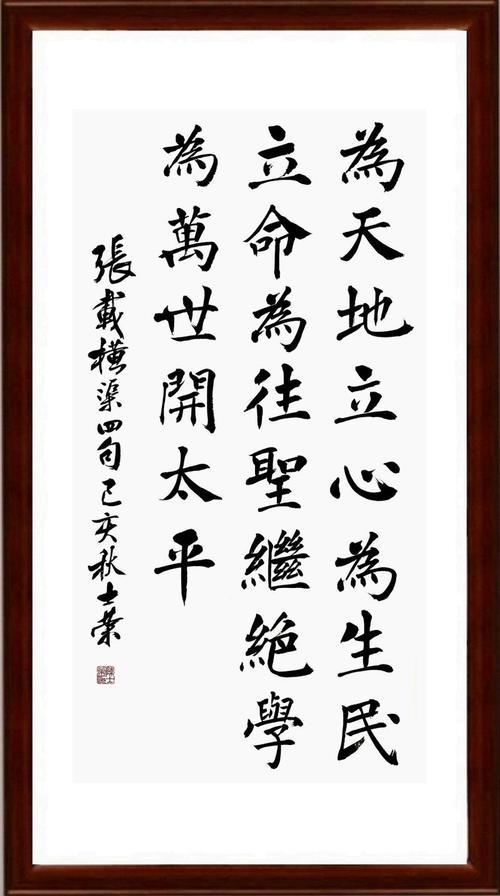 為天地立心為生民
立命為往聖繼絶學
為萬世開太平
張載横渠四句己亥秋士榮